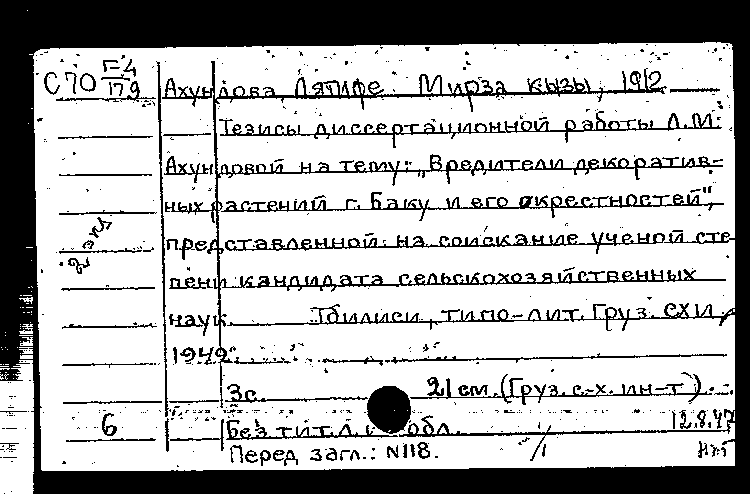 С70 Г-4/179
Ахундова, Лятифе Мирза кызы, 1912
Тезисы диссертационной работы Л.М.
Ахундовой на тему: „Вредители декоратив-
ных растений г. Баку и его окрестностей",
2 экз
представленной на соискание ученой сте-
пени кандидата сельскохозяйственных
наук. Тбилиси, типо-лит. Груз. СХИ,
1949.
3с. 21 см. (Груз. с.-х. ин-т).
6 Без тит. л. и обл. 12.8.47
Перед загл.: N118.